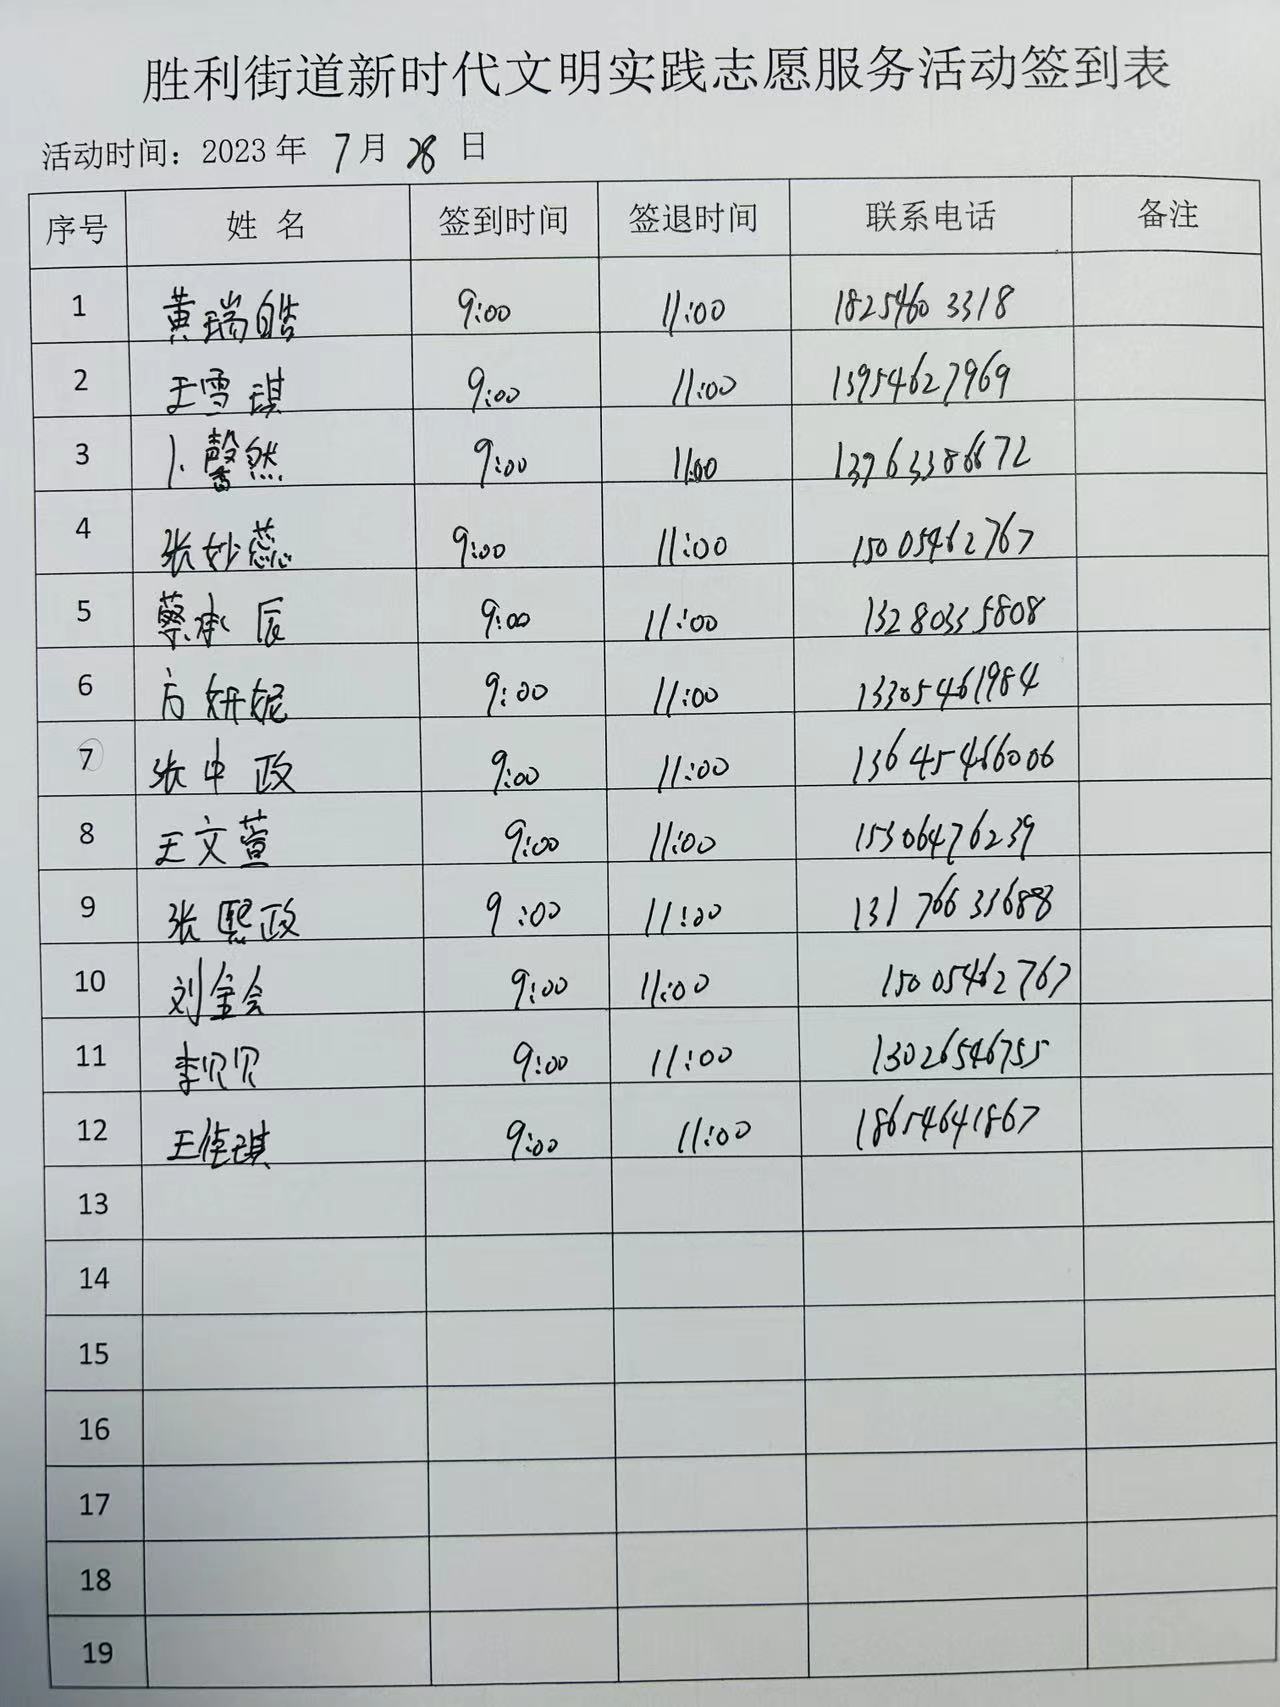 胜利街道新时代文明实践志愿服务活动签到表
活动时间：2023年 7月 28 日
序号 姓 名 签到时间 签退时间 联系电话 备注
1 黄瑞皓 9:00 11:00 18254603318
2 王雪琪 9:00 11:00 13954627969
3 卜馨然 9:00 11:00 13963386672
4 张妙蕊 9:00 11:00 15005462767
5 蔡承辰 9:00 11:00 13280335808
6 方妍妮 9:00 11:00 13305461984
7 张中政 9:00 11:00 13645466006
8 王文萱 9:00 11:00 15306476239
9 张熙政 9:00 11:00 13176633688
10 刘金会 9:00 11:00 15005462767
11 李贝贝 9:00 11:00 13026546755
12 王佳琪 9:00 11:00 18654641867
13
14
15
16
17
18
19